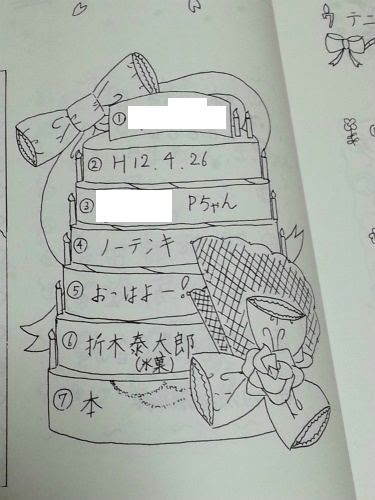 ①
② H12.4.26
③ Pちゃん
④ ノーテンキ
⑤ おっはよー!
⑥ 折木泰太郎
(氷菓)
⑦ 本
テニ